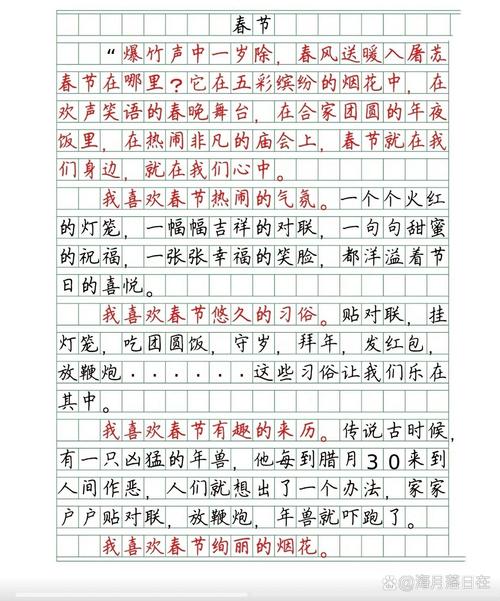 春节
“爆竹声中一岁除，春风送暖入屠苏
春节在哪里？它在五彩缤纷的烟花中，在
欢声笑语的春晚舞台，在合家团圆的年夜
饭里，在热闹非凡的庙会上，春节就在我
们身边，就在我们心中。
我喜欢春节热闹的气氛。一个个火红
的灯笼，一幅幅吉祥的对联，一句句甜蜜
的祝福，一张张幸福的笑脸，都洋溢着节
日的喜悦。
我喜欢春节悠久的习俗。贴对联，挂
灯笼，吃团圆饭，守岁，拜年，发红包，
放鞭炮······这些习俗让我们乐在
其中。
我喜欢春节有趣的来历。传说古时候，
有一只凶猛的年兽，他每到腊月30来到
人间作恶，人们就想出了一个办法，家家
户户贴对联，放鞭炮，年兽就吓跑了。
我喜欢春节绚丽的烟花。
海月落日在